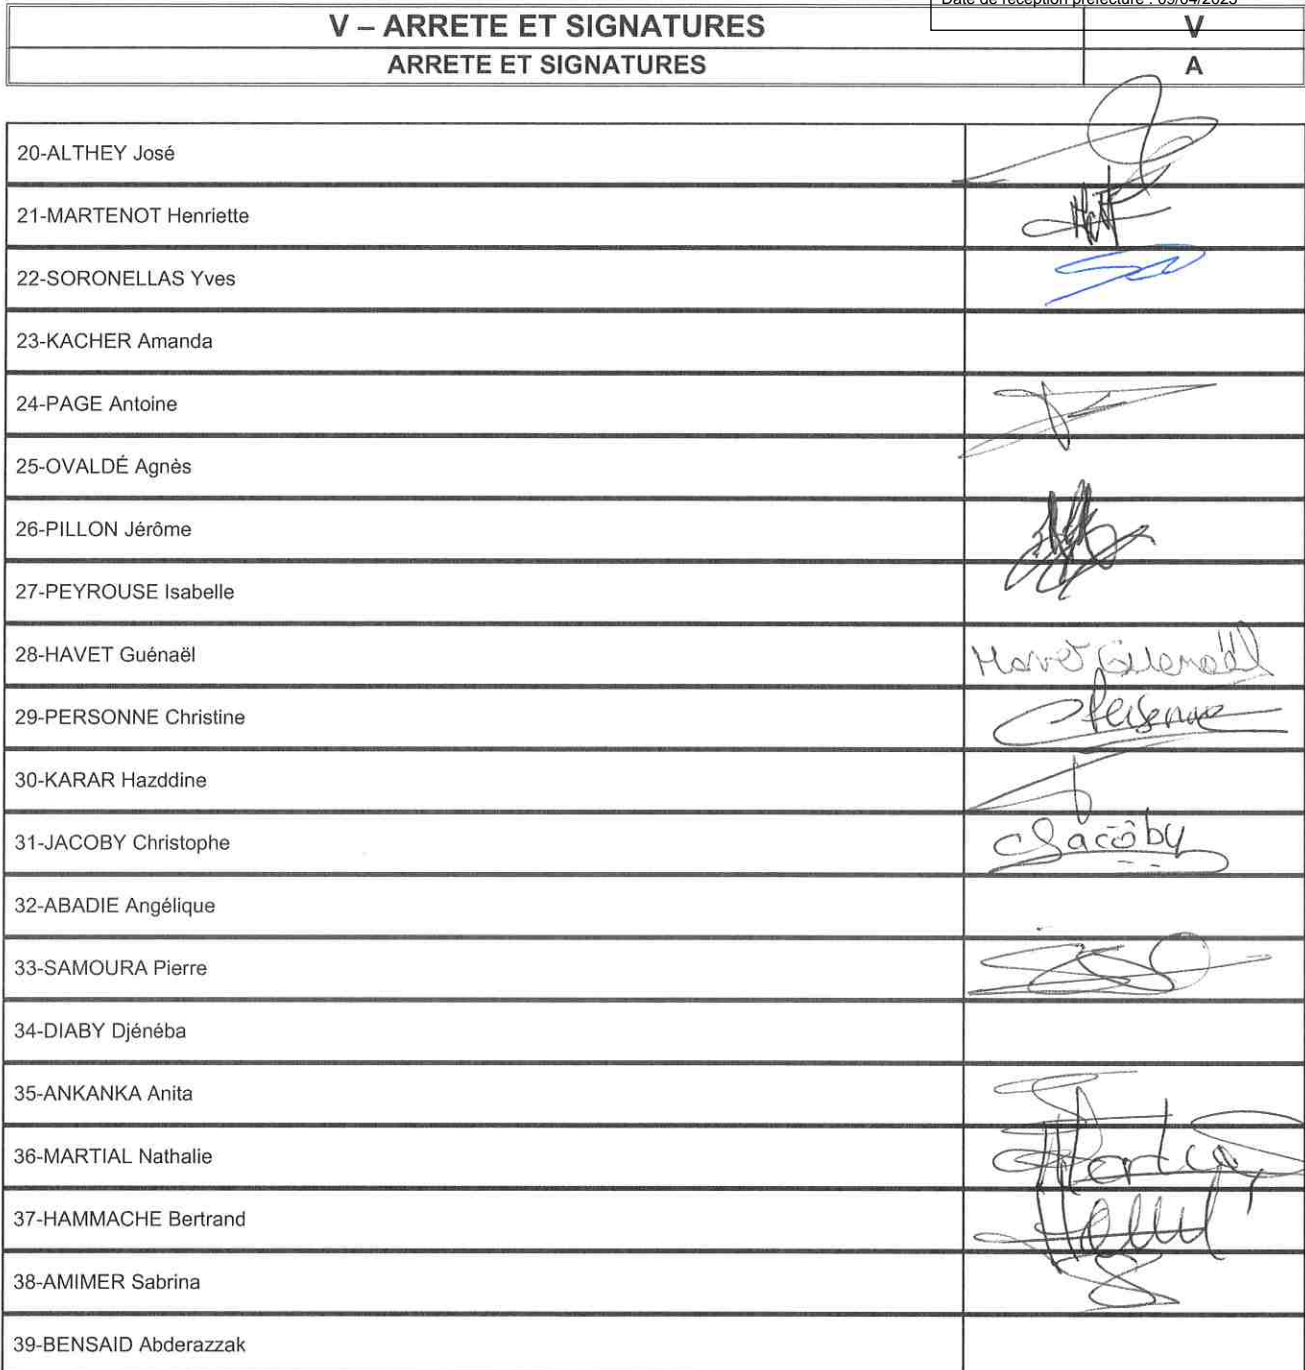 Date de réception préfecture : 09/04/2025
V – ARRETE ET SIGNATURES V
ARRETE ET SIGNATURES A
20-ALTHEY José
21-MARTENOT Henriette
22-SORONELLAS Yves
23-KACHER Amanda
24-PAGE Antoine
25-OVALDÉ Agnès
26-PILLON Jérôme
27-PEYROUSE Isabelle
28-HAVET Guénaël Havet Guenaël
29-PERSONNE Christine CPersonne
30-KARAR Hazddine
31-JACOBY Christophe CJacoby
32-ABADIE Angélique
33-SAMOURA Pierre
34-DIABY Djénéba
35-ANKANKA Anita
36-MARTIAL Nathalie
37-HAMMACHE Bertrand
38-AMIMER Sabrina
39-BENSAID Abderazzak